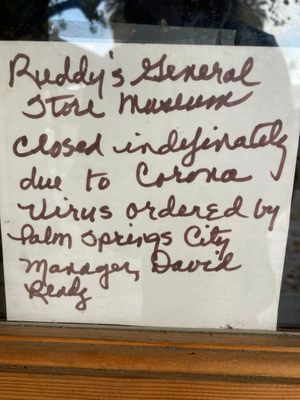 Ruddy's General
Store Museum
closed indefinately
due to Corona
Virus ordered by
Palm Springs City
Manager, David
Ready